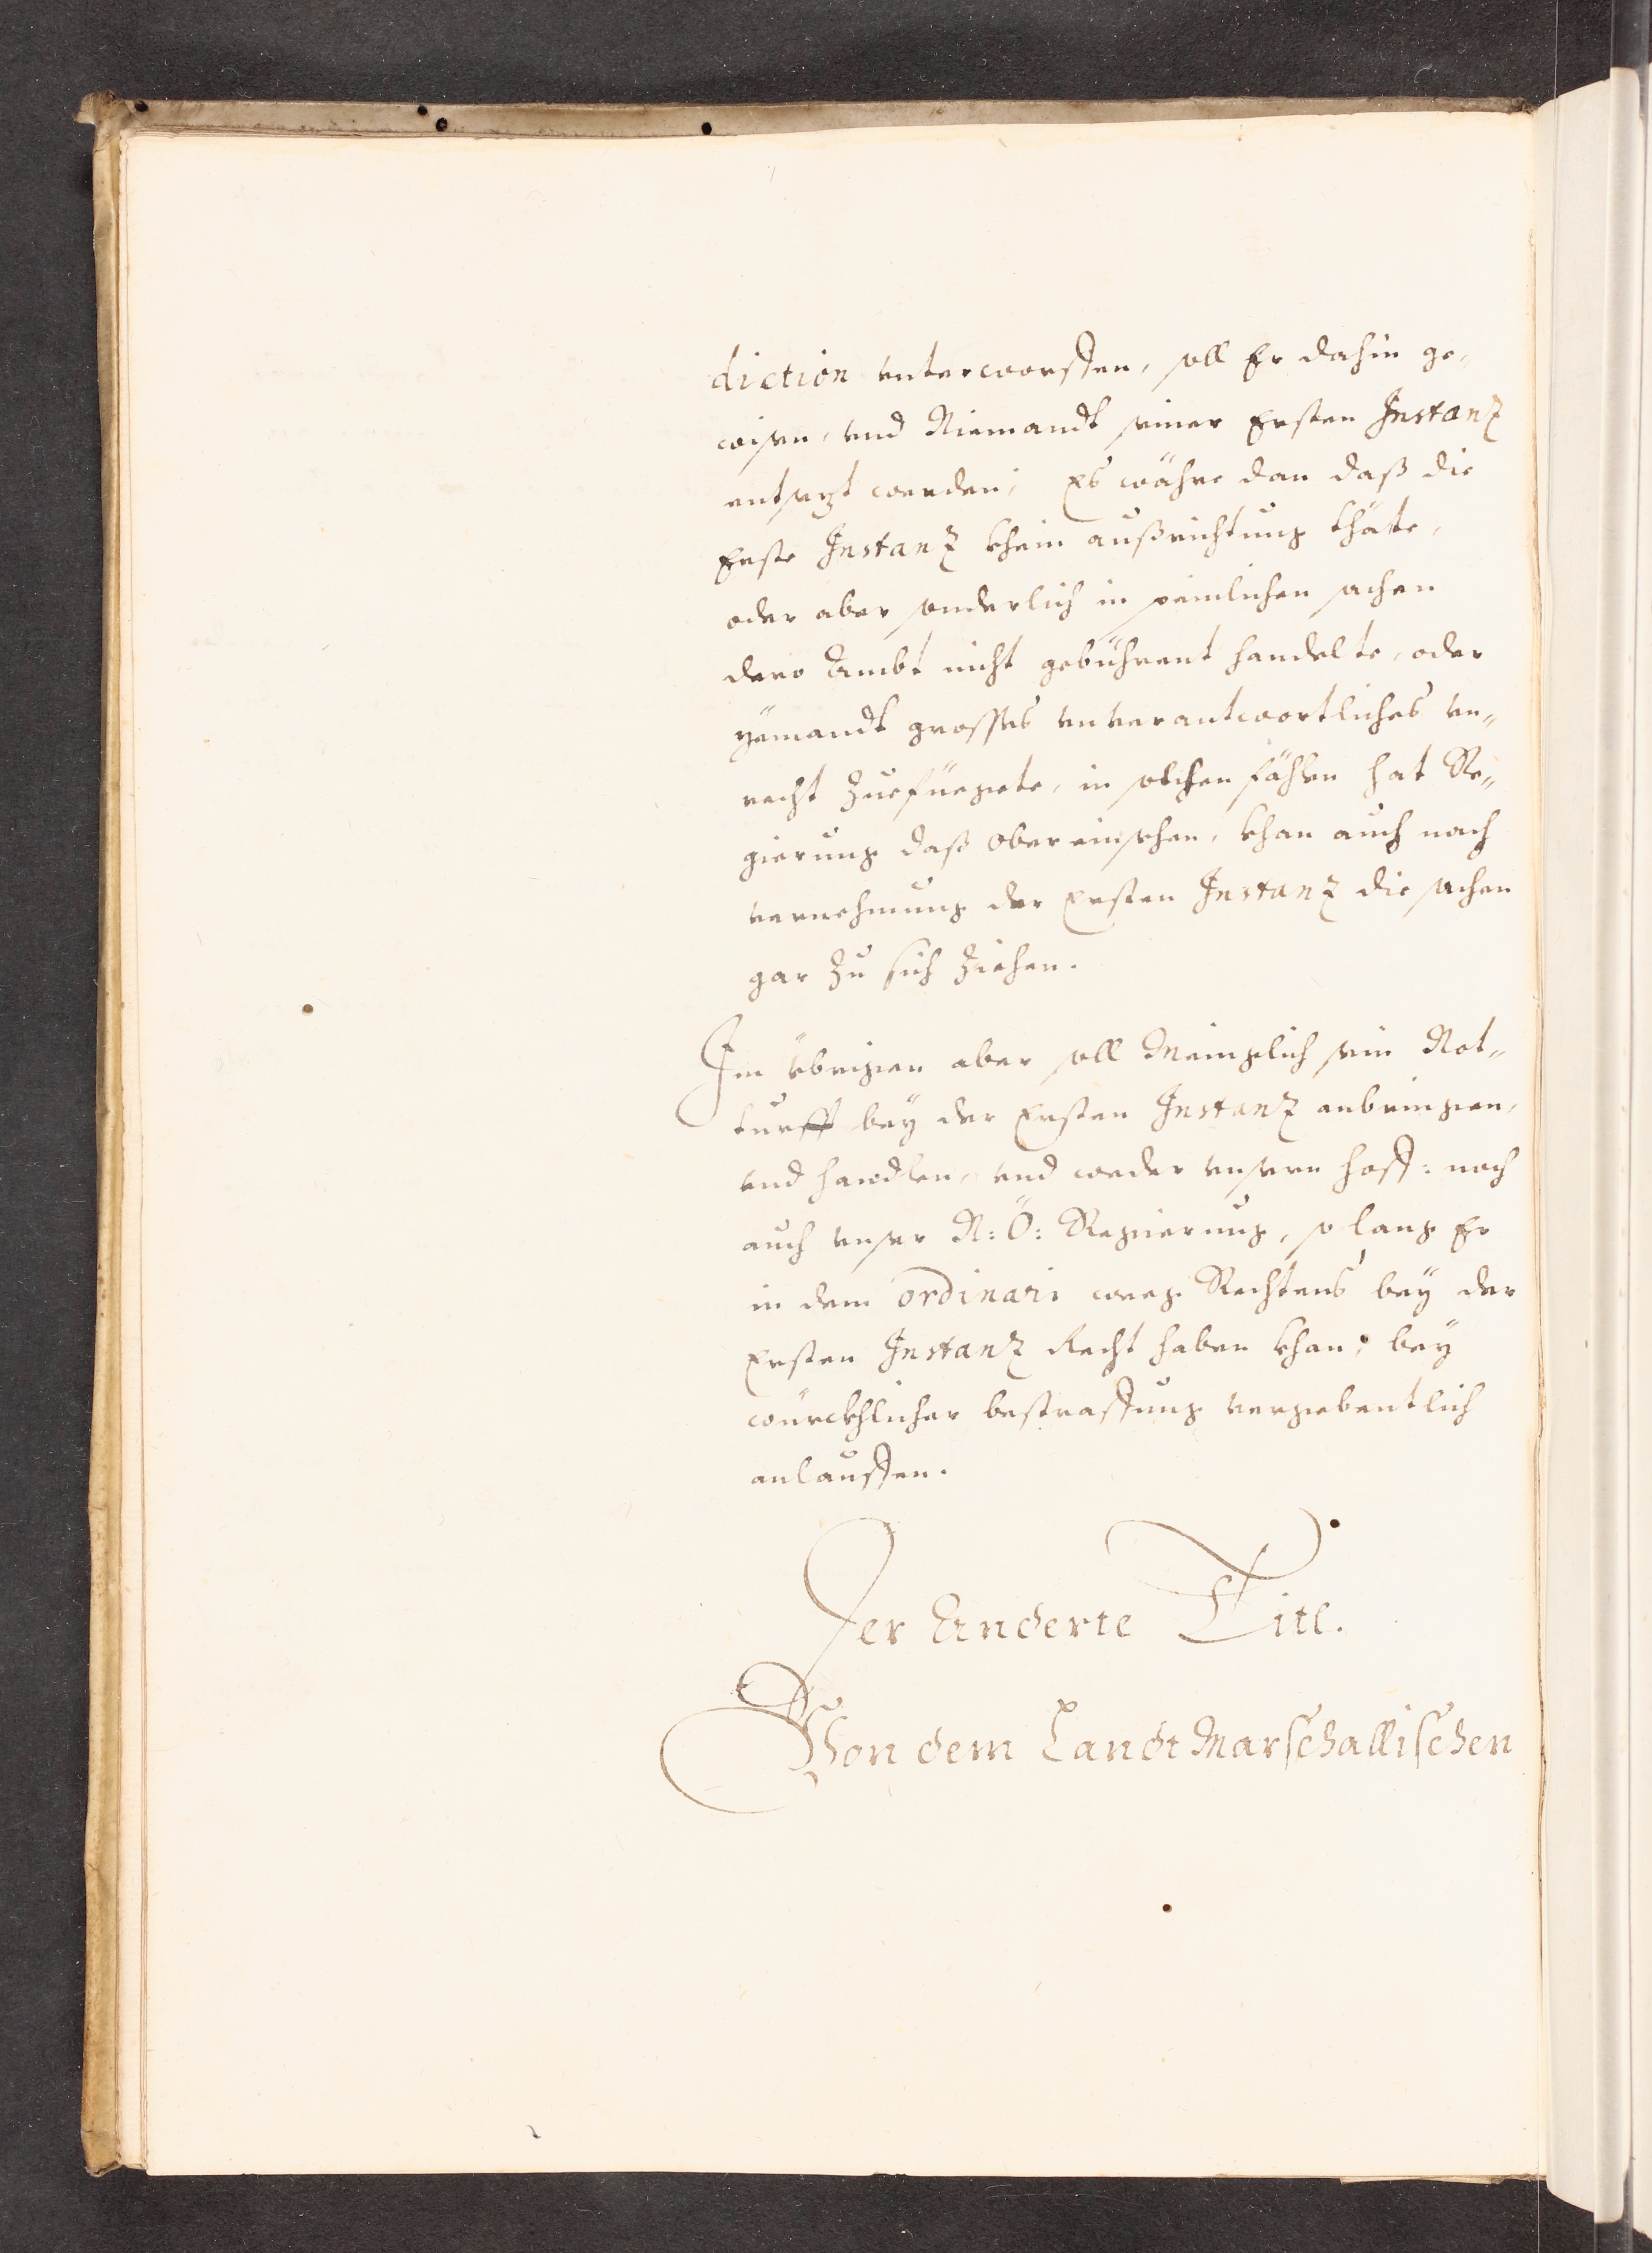 diction vnterworffen, soll Er dahin ge,
wisen, vnd Niemandt seiner Ersten Instanz
entsezt werden, Es währe dan daß die
Erste Instanz khein außrichtung thäte,
oder aber sonderlich in peinlichen sachen
dero Ambt nicht gebührent handelte, oder
yemandt grosses vnverantwortliches vn„
recht zuefüegete, in solchen fählen hat Re„
gierung daß Obereinsehen, khan auch nach
vernehmung der Ersten Instanz die sachen
gar zu sich ziehen.
Im übrigen aber soll Meniglich sein Not„
turfft bey der Ersten Instanz anbringen,
vnd handlen, vnd weder vnsern hoff: noch
auch vnser N: Ö: Regierung, so lang Er
in dem ordinari weeg Rechtens bey der
Ersten Instanz Recht haben khan, bey
würckhlicher bestraffung vergebentlich
anlauffen.
Der Anderte Titl.
Von dem Landt Marschallischen